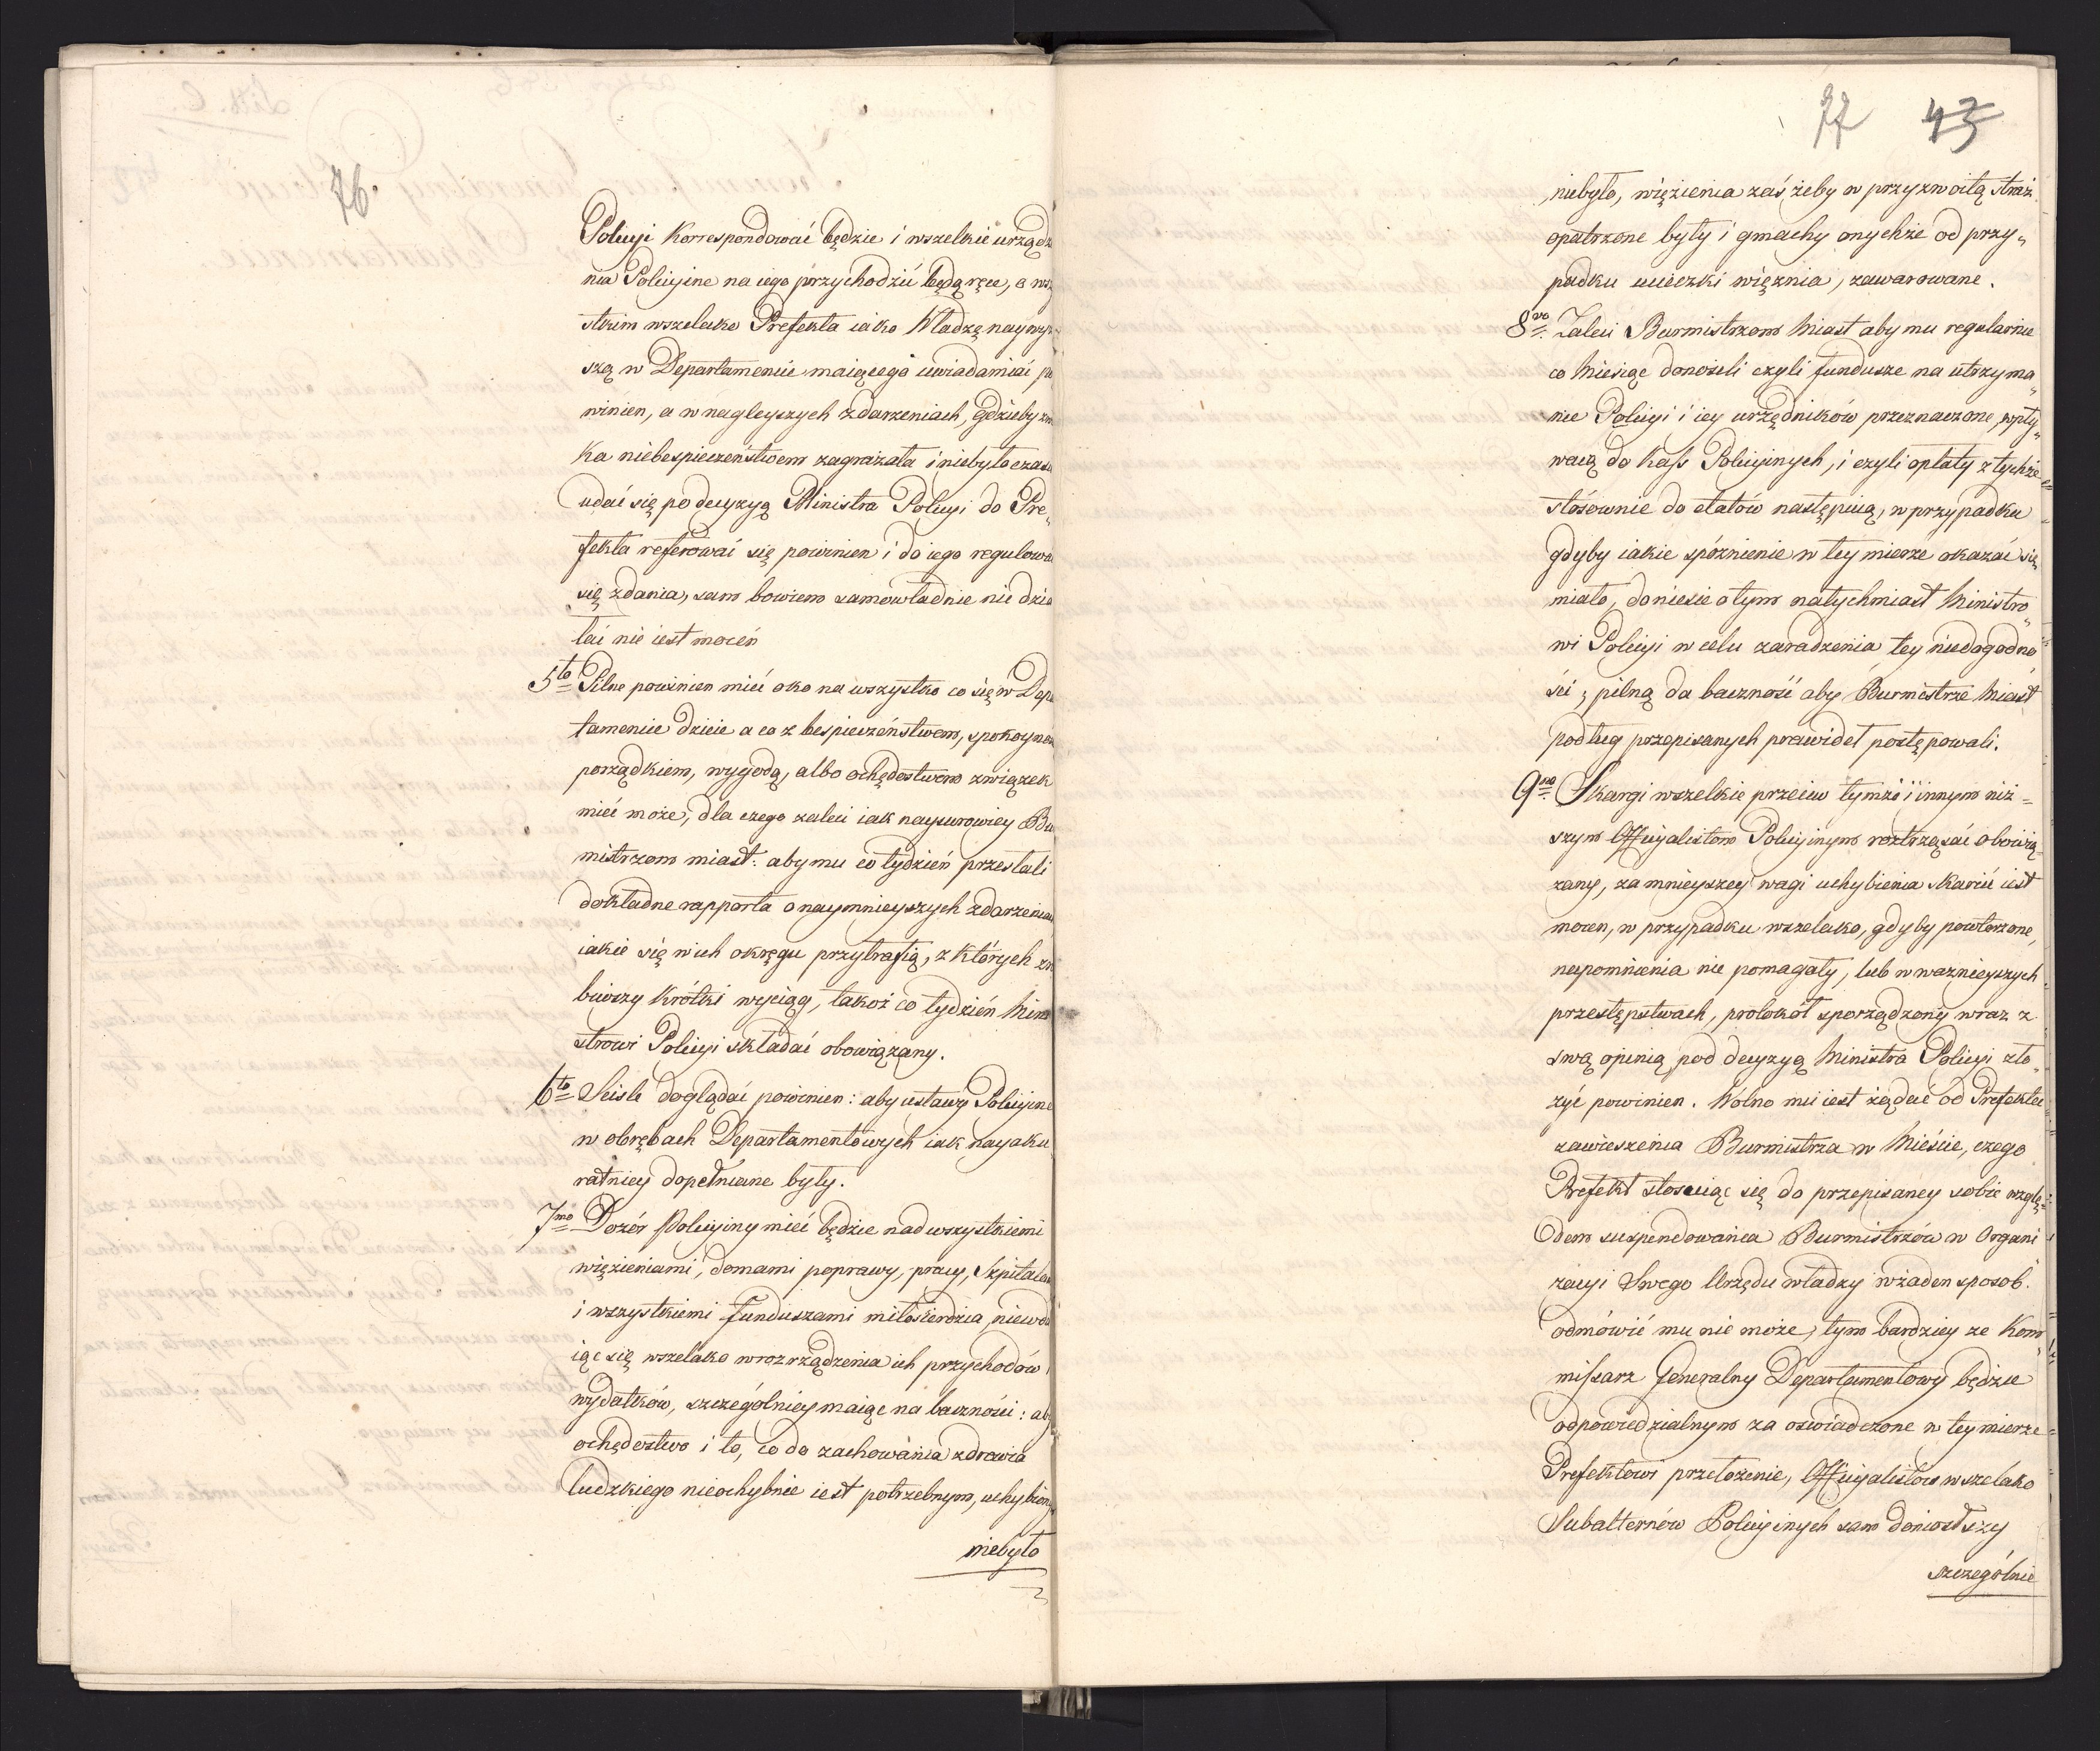 76.
Policyi Korrespondować będzie i wszelkie urządze
nia Policyine na iego przychodzić będą ręce, o wszy
stkim wszelako Prefekta iako Władzę naywyż
szą w Departamencie maiącego uwiadamiać po
winien, a w nagleyszych zdarzeniach, gdzieby zwło
ka niebespieczeństwem zagrażała i niebyło czasu
udać się po decyzyą Ministra Policyi do Pre„
fekta referować się powinien i do iego regulować
się zdania, sam bowiem samowładnie nie dzia
łać nie iest mocen
5to Pilne powinien mieć oko na wszystko co się w Depar
tamencie dzieie a co z bespieczeństwem, spokoynoś
porządkiem, wygodą, albo ochędostwem związek
mieć może, dla czego zaleci iak naysurowiey Bur
mistrzom miast: aby mu co tydzień przesłali
dokładne rapporta o naymnieyszych zdarzeniach
iakie się w ich okręgu przytrafią, z których zro
biwszy krótki wyciąg, takoż co tydzień Mini
strowi Policyi składać obowiązany.
6to Sciśle doglądać powinien: aby ustawy Policyine
w obrębach Departamentowych iak nayaku
ratniey dopełniane były.
7mo Dozór Policyiny mieć będzie nad wszystkiemi
więzieniami, domami poprawy, pracy, Szpitalami
i wszystkiemi funduszami miłosierdzia, niewda
iąc się wszelako w rozrządzenia ich przychodów i
wydatków, szczególniey maiąc na baczności: aby
ochędostwo i to, co do zachowania zdrowia
ludzkiego nieochybnie iest potrzebnym, uchybiony
niebyło
77 43
niebyło, więzienia zaś żeby w przyzwoitą straż
opatrzone były i gmachy onychże od przy„
padku ucieczki więznia, zawarowane.
8vo Zaleci Burmistrzom Miast aby mu regularnie
co Miesiąc donosili czyli fundusze na utrzyma„
nie Policyi i iey urzędników przeznaczone, wpły„
waią do Kass Policyinych, i czyli opłaty z tychże
stósownie do etatów następuią, w przypadku
gdyby iakie spóznienie w tey mierze okazać się
miało, doniesie o tym natychmiast Ministro„
wi Policyi w celu zaradzenia tey niedogodno
ści, pilną da baczność aby Burmistrze Miast
podług przepisanych prawideł postępowali.
9no Skargi wszelkie przeciw tymże i innym niż=
szym Officyalistom Policyinym roztrząsać obowią„
zany, za mnieyszey wagi uchybienia skarcić iest
mocen, w przypadku wszelako, gdyby powtorzone,
napomnienia nie pomagały, lub w ważnieyszych
przestępstwach, protokół sporządzony wraz z
swą opinią pod decyzyą Ministra Policyi zło„
żyć powinien. Wolno mu iest żądać od Prefekta
zawieszenia Burmistrza w Mieście, czego
Prefekt stosuiąc się do przepisaney sobie wzglę„
dem suspendowania Burmistrzów w Organi
zacyi Swego Urzędu władzy w żaden sposob
odmówić mu nie może, tym bardziey ze Kom„
missarz Generalny Departamentowy będzie
odpowiedzialnym za oświadczone w tey mierze
Prefektowi przełożenie, Officyalistów wszelako
Subalternów Policyinych sam doniosłszy
szczególnie